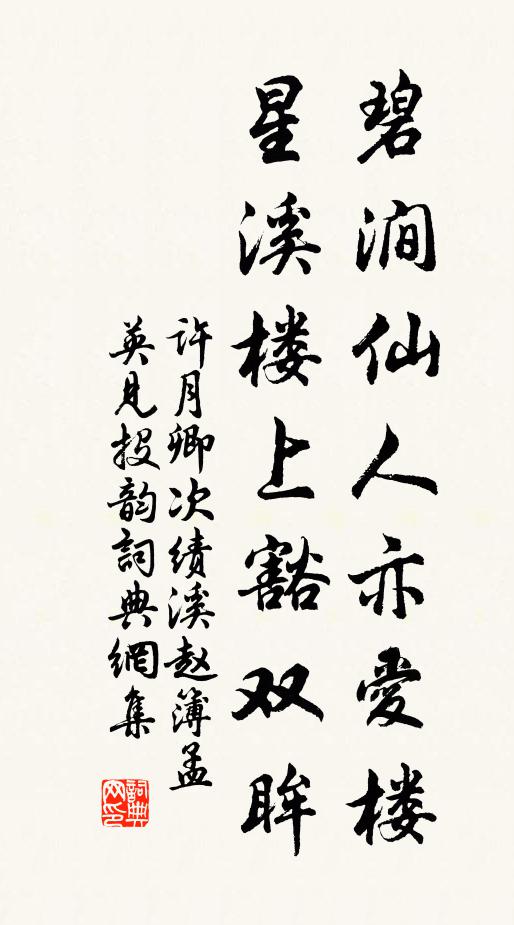 碧澗仙人亦愛楼
星溪楼上豁双眸
许月卿次绩溪赵簿孟
英見投韵詞典網集
詞典网印